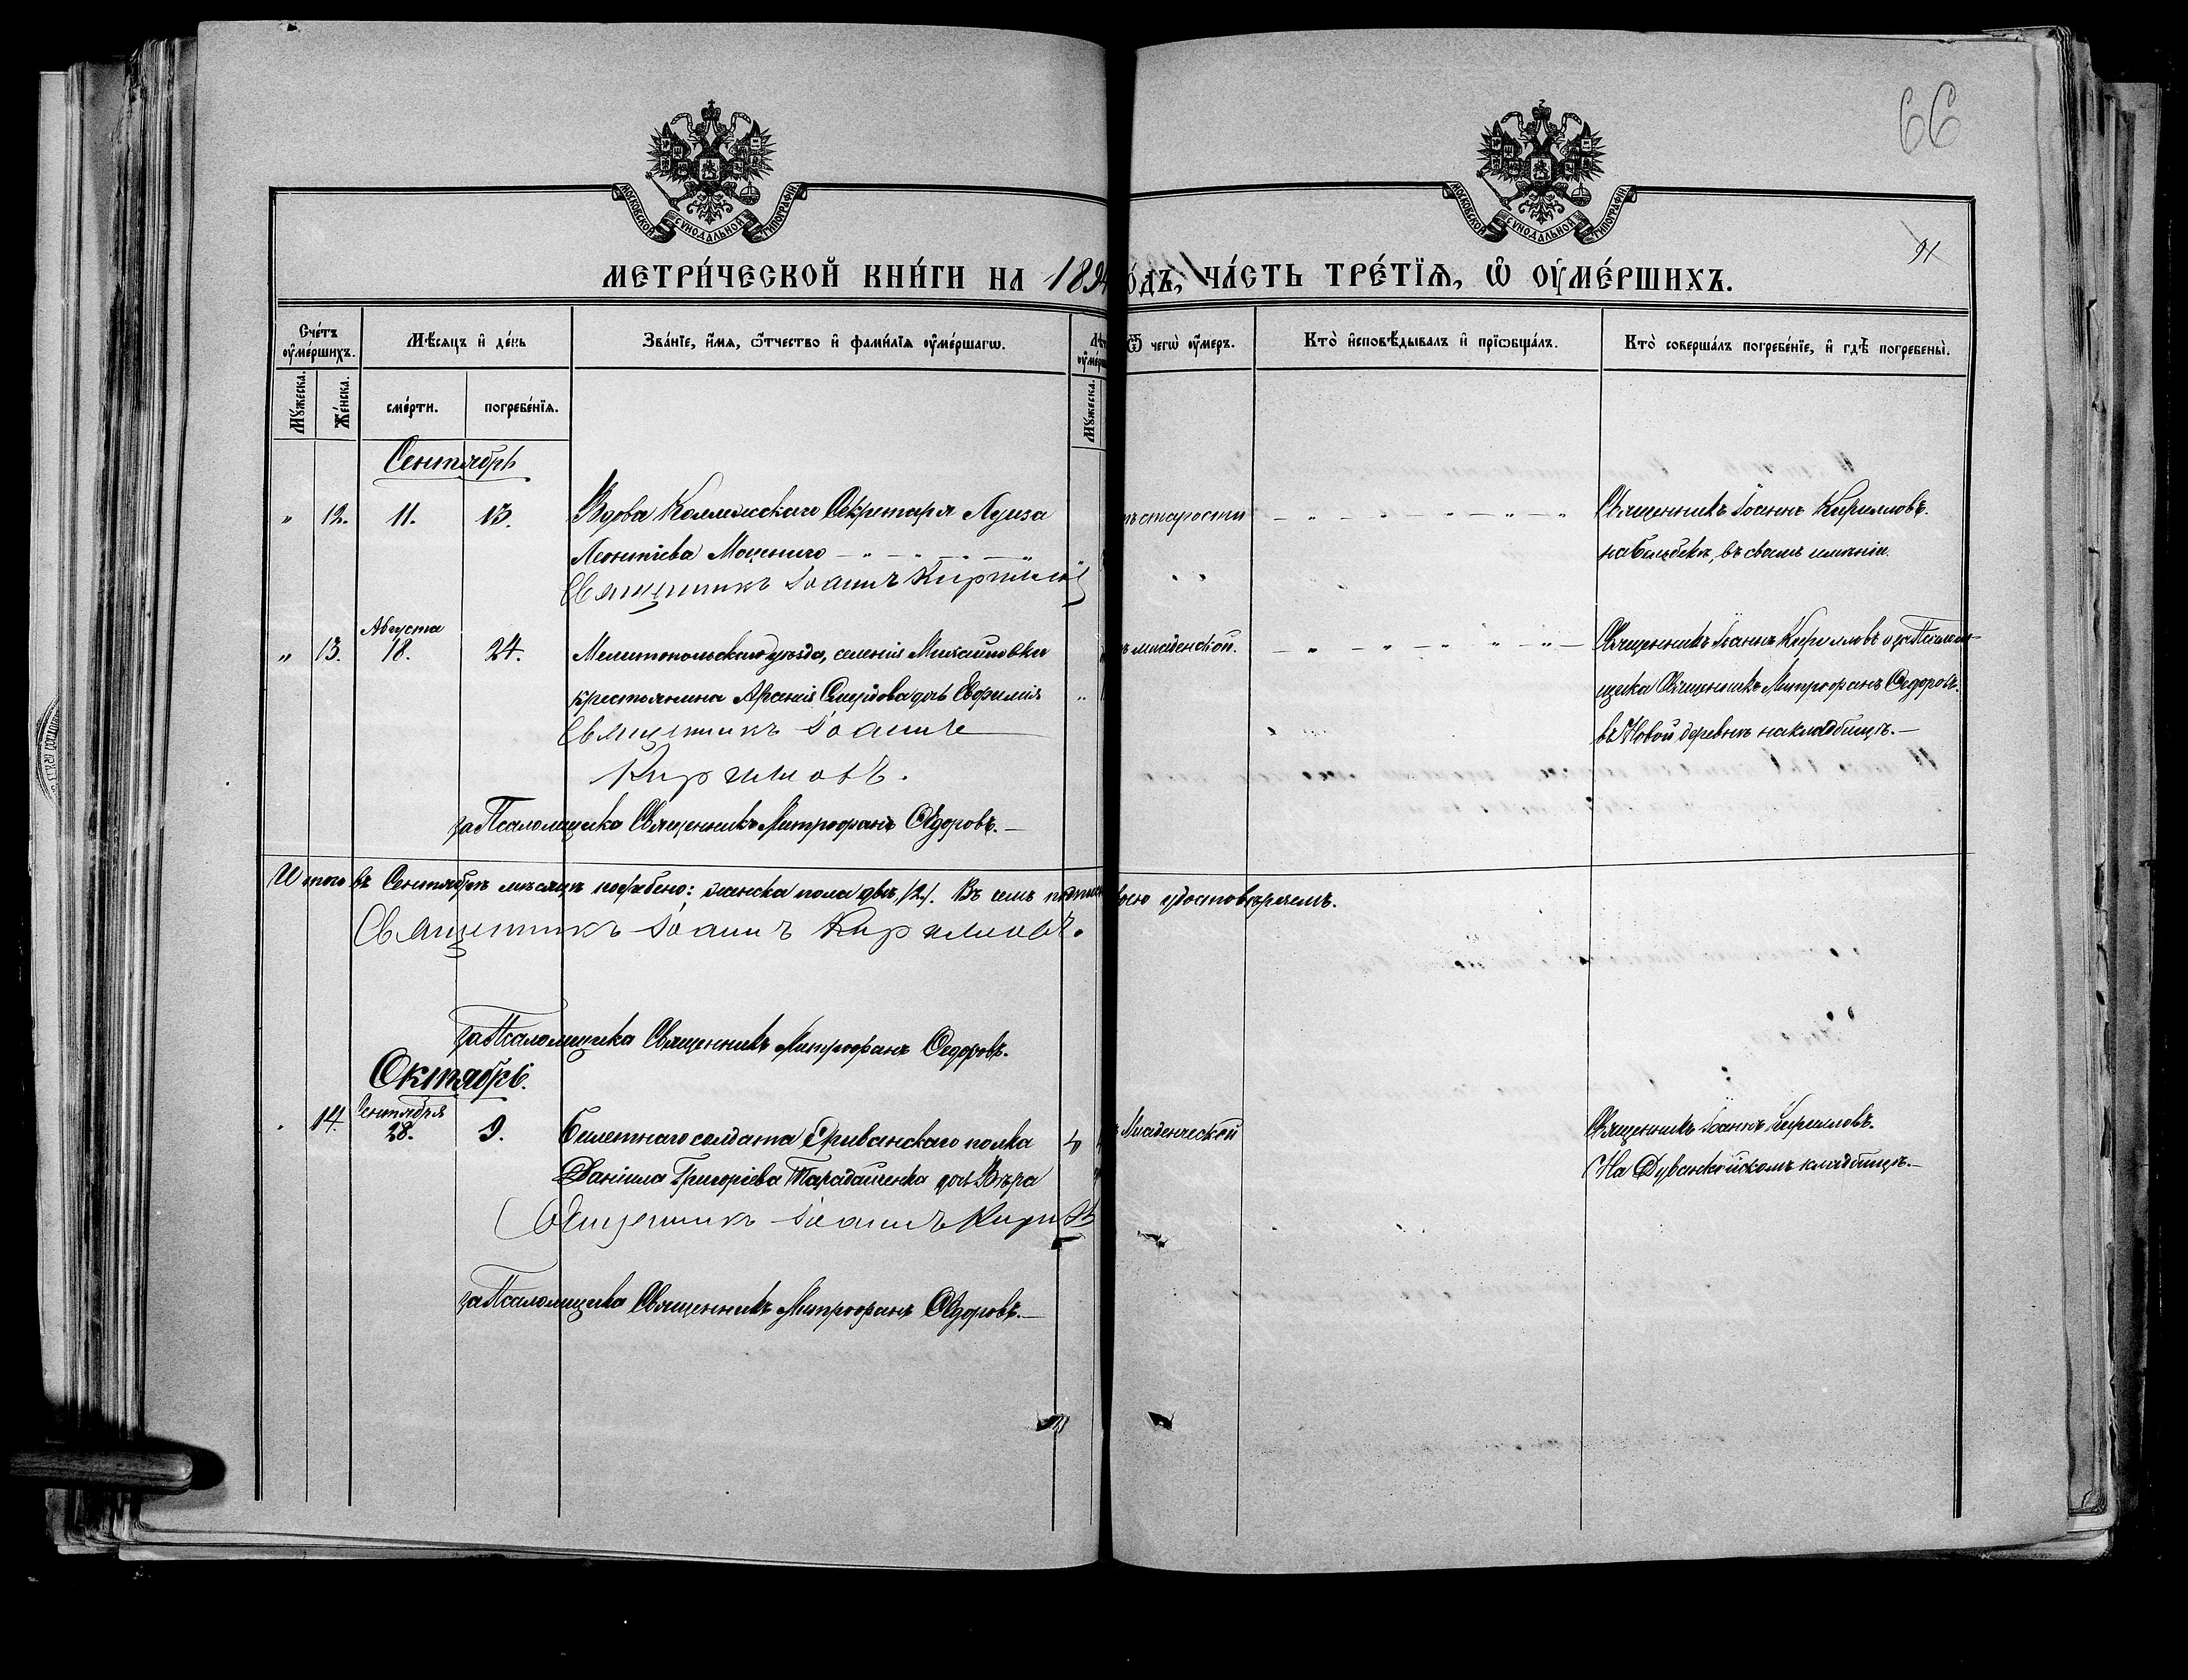 66
МОСКОВСКОЙ СѴНОДАЛЬНОЙ ТИПОГРАФІИ
МОСКОВСКОЙ СѴНОДАЛЬНОЙ ТИПОГРАФІИ
91
МЕТРИ́ЧЕСКОЙ КНИ́ГИ НА 1894 ... О́ДЪ, ЧА́СТЬ ТРЕ́ТЇѦ, Ѡ҆ ОУ҆МЕ́РШИХЪ.
Сче́тъ оу҆ме́ршихъ.
Мѣ́сѧцъ и҆ де́нь
Зва́нїе, и҆́мѧ, ѻ҆́тчество и҆ фами́лїѧ оу҆ме́ршагѡ.
Ѿ чегѡ̀ оу҆́меръ.
Кто̀ и҆сповѣ́дывалъ и҆ прїѡбща́лъ.
Кто̀ соверша́лъ погребе́нїе, и҆ гдѣ̀ погребены̀.
Мꙋ́жеска.
Же́нска.
сме́рти.
погребе́нїѧ.
Мꙋ́жеска.
Сентябрь
" 12. 11. 13. Вдова Коллежскаго Секретаря Луиза
Леонтіева Моцениго
старости
Священникъ Іоаннъ Кирилловъ.
на Бельбекѣ, въ своемъ имѣніи.
Священникъ Іоаннъ Кирилловъ
Августа
" 13. 18. 24. Мелитопольскаго уѣзда, селенія Михайловки
крестьянина Арсенія дочь Евфимія
младенской.
Священникъ Іоаннъ Кирилловъ и за Псалом-
щика Священникъ Митрофанъ Ѳедоровъ.
въ Новой деревнѣ на кладбищѣ.—
Священникъ Іоаннъ
Кирилловъ.
за Псаломщика Священникъ Митрофанъ Ѳедоровъ.—
Итого въ Сентябрѣ мѣсяцѣ погребено: женска пола двѣ, /2/. Въ семъ подписью своею удостовѣряемъ.
Священникъ Іоаннъ Кирилловъ.
за Псаломщика Священникъ Митрофанъ Ѳедоровъ.
Октябрь.
Сентября
14. 28. 9. Билетнаго солдата Эриванскаго полка
Даніила Григоріева Тарадайченка дочь Вѣра
Младенческой
Священникъ Іоаннъ Кирилловъ.
На Дуванкойскомъ кладбищѣ.—
Священникъ Іоаннъ
за Псаломщика Священникъ Митрофанъ Ѳедоровъ.—